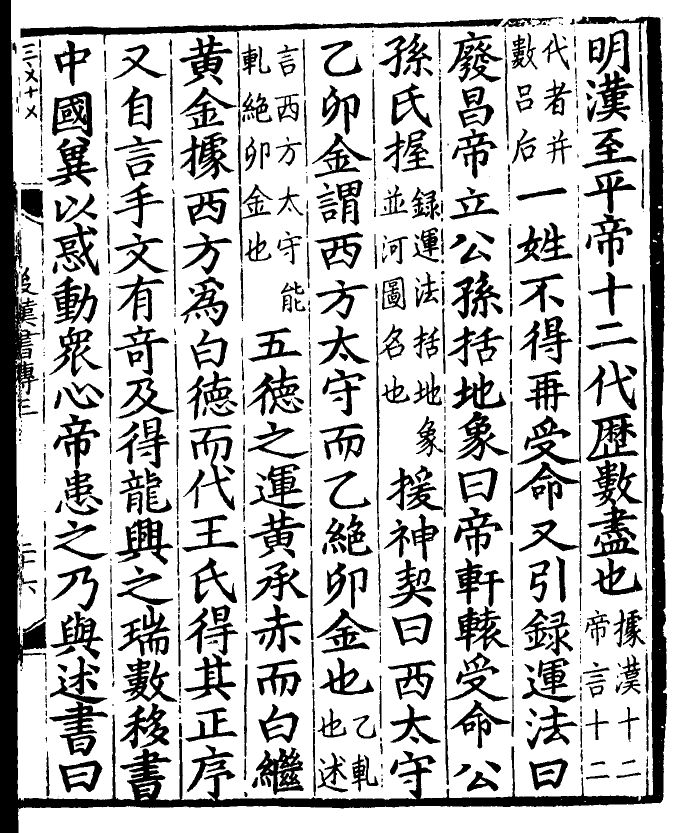 明漢至平帝十二代歴數盡也據漢十二帝言十二
代者并數呂后一姓不得再受命又引録運法曰
廢昌帝立公孫括地象曰帝軒轅受命公
孫氏握録運法括地象並河圖名也援神契曰西太守
乙卯金謂西方太守而乙絶卯金也乙軋也述
言西方太守能軋絶卯金也五德之運黃承赤而白繼
黃金據西方爲白德而代王氏得其正序
又自言手文有奇及得龍興之瑞數移書
中國冀以惑動衆心帝患之乃與述書曰
後漢書傳三